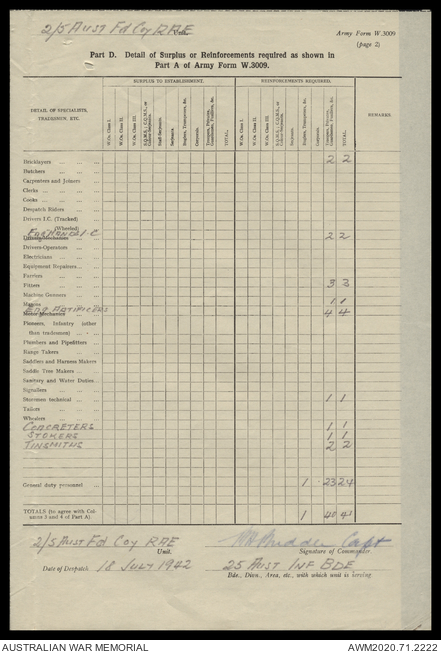 2/5 Aust Fd Coy RAE Unit.
Army Form W.3009
(page 2)
Part D. Detail of Surplus or Reinforcements required as shown in
Part A of Army Form W.3009.
DETAIL OF SPECIALISTS, TRADESMEN, ETC.
SURPLUS TO ESTABLISHMENT.
REINFORCEMENTS REQUIRED.
REMARKS
W.Os. Class I. W.Os. Class II. W.Os. Class III. Staff-Serjeants. Serjeants. Buglers, Trumpeters, &c. Corporals. TOTAL.
W.Os. Class I. W.Os. Class II. W.Os. Class III. Serjeants. Buglers, Trumpeters, &c. Corporals. TOTAL.
Bricklayers 2 2
Butchers
Carpenters and Joiners
Clerks
Cooks
Despatch Riders
Drivers I.C. (Tracked)
(Wheeled)
2 2
Drivers-Operators
Electricians
Equipment Repairers
Farriers
Fitters 3 3
Machine Gunners
Masons 1 1
Eng Artificers
Motor Mechanics 4 4
Pioneers, Infantry (other
than tradesmen)
Plumbers and Pipefitters
Range Takers
Saddlers and Harness Makers
Saddle Tree Makers
Sanitary and Water Duties
Signallers
Storemen technical 1 1
Tailors
Wheelers
Concreters 1 1
Stokers 1 1
Tinsmiths 2 2
General duty personnel 1 23 24
TOTALS (to agree with Col-
umns 3 and 4 of Part A). 1 40 41
2/5 Aust Fd Coy RAE
Unit.
Capt
Signature of Commander.
Date of Despatch 18 July 1942
25 Aust Inf Bde
Bde., Divn., Area, etc., with which unit is serving
AUSTRALIAN WAR MEMORIAL
AWM2020.71.2222